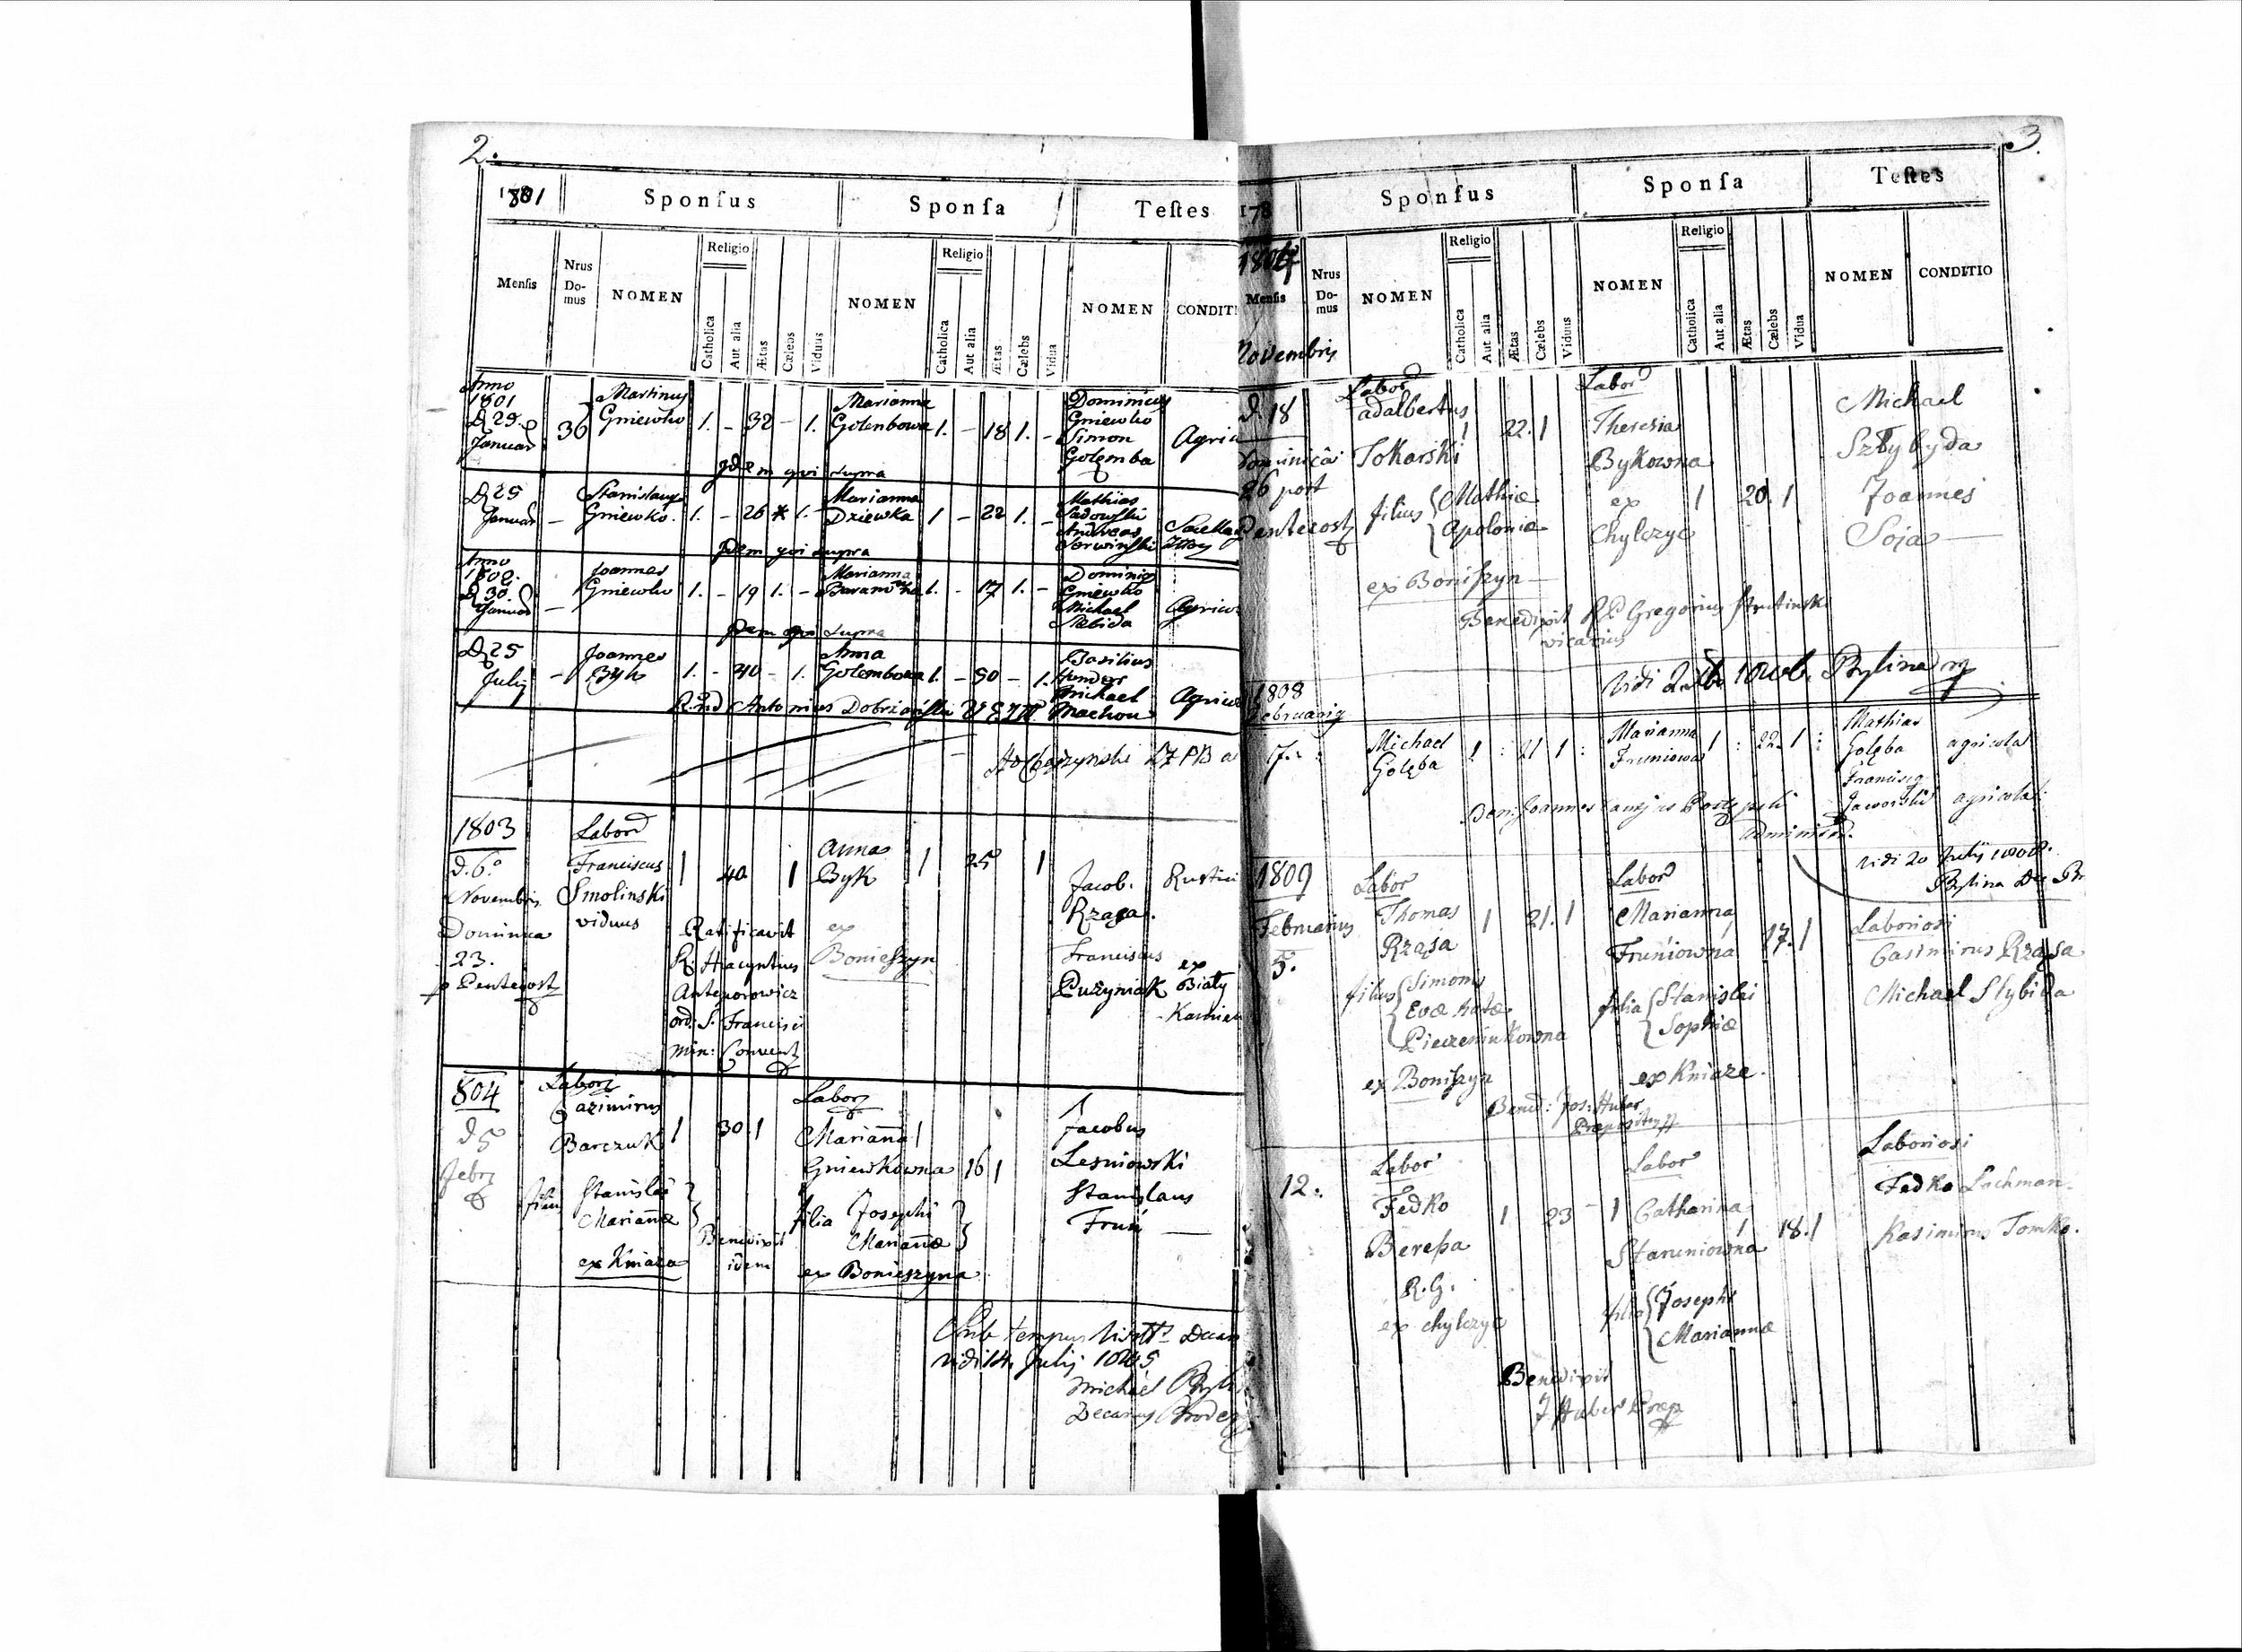 2.
1801
Sponſus
Sponſa
Teſtes
Menſis
Nrus
Do-
mus
NOMEN
Religio
Catholica
Aut alia
Ætas
Cælebs
Viduus
NOMEN
Religio
Catholica
Aut alia
Ætas
Cælebs
Vidua
NOMEN
CONDIT
Anno
1801
D 29
Januar
36
Martinus
Gniewko
1. - 32 - 1.
Marianna
Golenbowa
1. - 18 1. -
Dominicus
Gniewko
Simon
Golemba
Agric
Idem qui supra
D 25
Januar
-
Stanislaus
Gniewko.
1. - 26 * 1. -
Marianna
Dziewka
1 - 22 1. -
Mathias
Sadowski
Andreas
Idem qui supra
Anno
1802.
D 30
Januar
-
Joannes
Gniewko
1. - 19 1. -
Marianna
1. - 17 1. -
Dominig
Gniewko
Michael
Slabida
Agrico
Idem qui supra
D 25
July
-
Joannes
Byk
1. - 40 - 1.
Anna
Golembowa
1. - 50 - 1.
Basilius
Michael
Machou
Agrico
Rnd Antonius
1803
d. 6o
Novembris
Dominica
23.
p Pentecost
Labor
Franciscus
Smolinski
viduus
1 40 1
Anna
Byk
1 25 1
ex
Bonieszyn
Ratificavit
R. Hiacyntius
Anteporowicz
ord: S. Francisci
Min: Convent
Jacob.
Rzaga.
Franciscus
Puzyniak
Rustici
ex
Biały
Kamien
804
d 5
Febr
Labor
Cazimirus
Barczuk
1 30 1
filius
Stanislai
Mariannæ
ex Kniaze
Benedixit
idem
Labor
Marianna
Gniewkowna
1 16 1
filia
Josephi
Mariannæ
ex Bonieszyna
Jacobus
Lesniowski
Stanislaus
Fruń
Sub tempus Decan
vidi 14 July
Michael
Decanus
3.
178
Sponſus
Sponſa
Teſtes
Menſis
Nrus
Do-
mus
NOMEN
Religio
Catholica
Aut alia
Ætas
Cælebs
Viduus
NOMEN
Religio
Catholica
Aut alia
Ætas
Cælebs
Vidua
NOMEN
CONDITIO
Novembris
d 18
Dominica
26 post
Pentecost
Labor
Adalbertus
Tokarski
1 22. 1
filius
Mathiæ
Apoloniæ
ex Boniszyn
Labor
Theresia
Bykowna
ex
Chylczyc
1 20. 1
Michael
Joannes
Soja
Benedixit RD Gregorius
vicarius
1808
Februarij
17.
Michael
Gołęba
1 : 21 1 :
Marianna
Fruniowa
1 : 22. 1 :
Mathias
Gołęba
agricola
Francisq
Jaworski
agricola
Ben: Joannes
administr.
vidi 20 Julij 1808.
Bylina
1809
Februarius
5.
Labor
Thomas
Rząsa
1 21. 1
filius
Simonis
Evæ natæ
Pieczeniukowna
ex Boniszyn
Labor
Marianna
Fruniowna
17. 1
filia
Stanislai
Sophiæ
ex Kniaze.
Laboriosi
Casimirus Rząsa
Michael Slybida
Bened: Jos: Huber
Præpositus
12.
Labor
Fedko
Bereza
R. G.
ex Chylczyc
1 23 - 1
Labor
Catharina
1 18. 1
filia
Josephi
Mariannæ
Laboriosi
Fedko Lachman
Kasimirus Tomko.
Benedixit
J Huber Præp